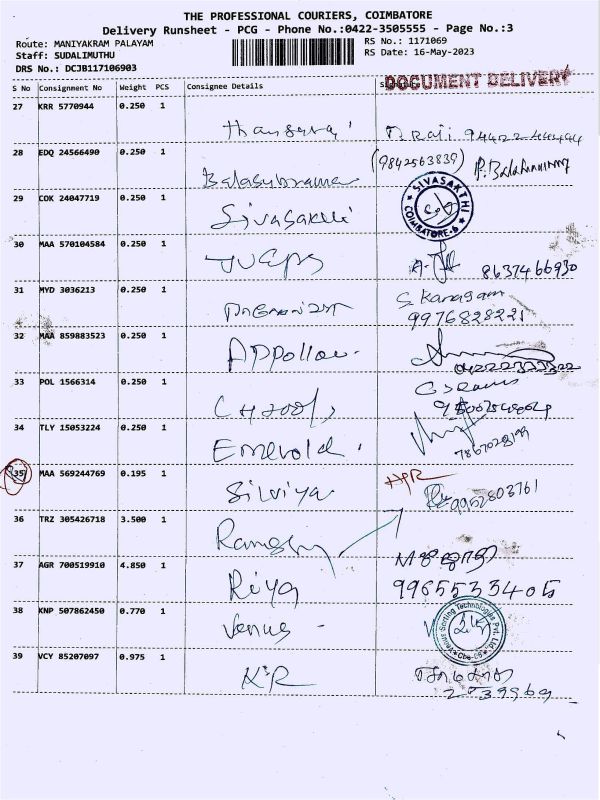 THE PROFESSIONAL COURIERS, COIMBATORE
Delivery Runsheet - PCG - Phone No.:0422-3505555 - Page No.:3
Route: MANIYAKRAM PALAYAM
Staff: SUDALIMUTHU
DRS No.: DCJB117106903
RS No.: 1171069
RS Date: 16-May-2023
S No Consignment No Weight PCS Consignee Details
DOCUMENT DELIVERY
27 KRR 5770944 0.250 1
28 EDQ 24566490 0.250 1
(9842563839)
Balasubrama
29 COK 24047719 0.250 1
Sivasakthi
SIVASAKTHI COIMBATORE-6
30 MAA 570104584 0.250 1
8637466930
31 MYD 3036213 0.250 1
S. Kanagam
9976828221
32 MAA 859883523 0.250 1
Appollo
33 POL 1566314 0.250 1
34 TLY 15053224 0.250 1
Emerold.
35 MAA 569244769 0.195 1
Silviya
9952803761
36 TRZ 305426718 3.500 1
37 AGR 700519910 4.850 1
Riya
9965533405
38 KNP 507862450 0.770 1
Venus -
Venus Sorting Technologies Pvt. Ltd.
39 VCY 85207097 0.975 1
K&R